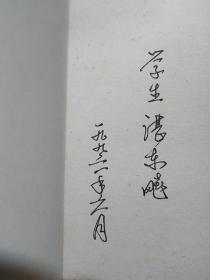 学生 谌东飚
一九九二年六月